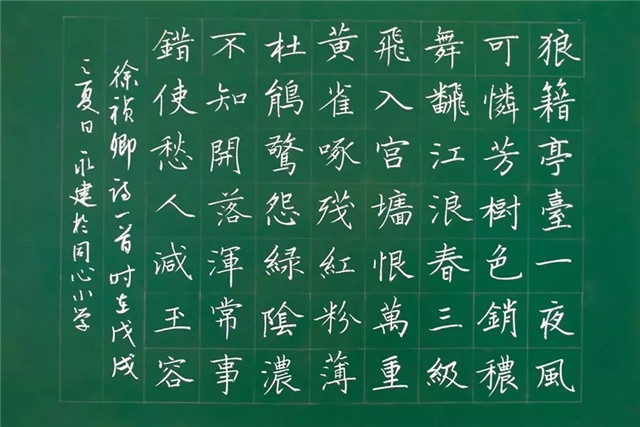 狼籍亭臺一夜風
可憐芳樹色銷穠
舞飜江浪春三級
飛入宮墻恨萬重
黃雀啄殘紅粉薄
杜鵑驚怨綠陰濃
不知開落渾常事
錯使愁人減玉容
徐禎卿詩一首时在戊戌
之夏日永建於同心小学